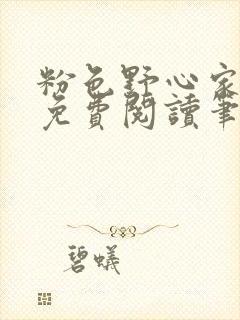 粉色野心家
免費閱讀筆
碧蟻